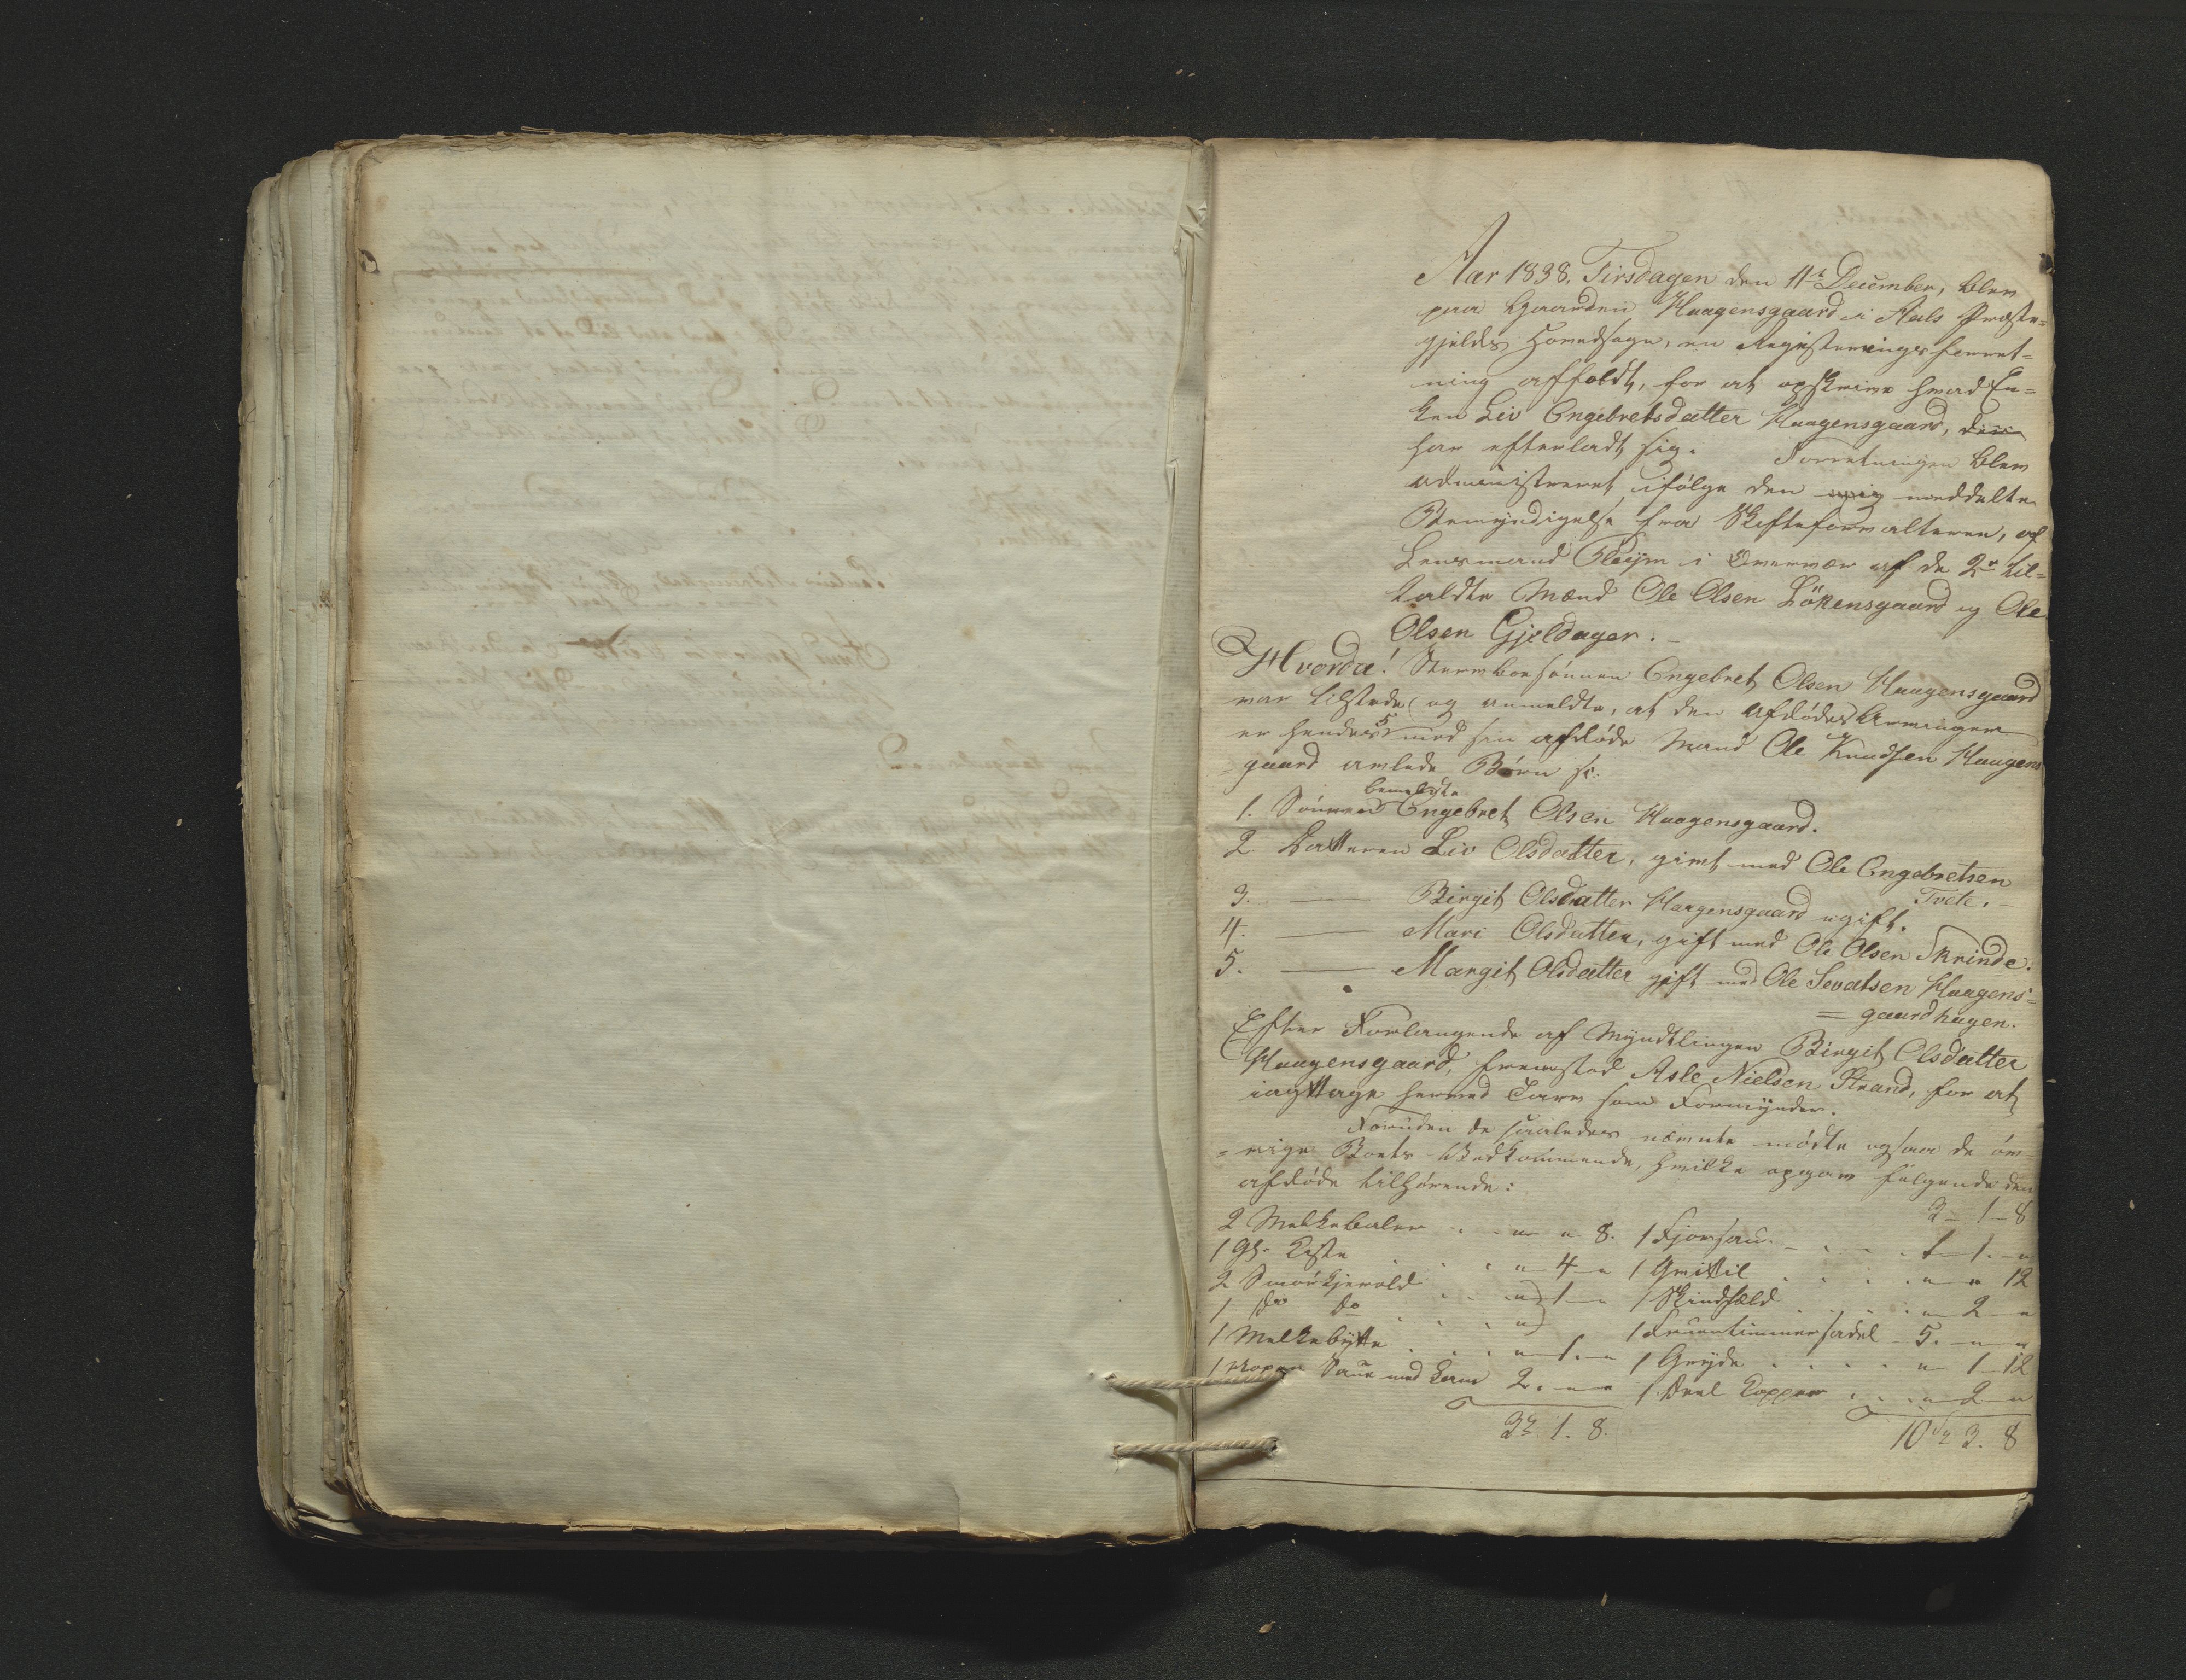 Aar 1838, Tirsdagen den 11te December, blev
paa Gaarden Haagensgaard i Aals Præste=
gjelds Hovedsogn, en Registreringsforret=
ning afholdt, for at opskrive hvad En=
ken Liv Engebretsdatter Haagensgaard,
har efterladt sig. Forretningen blev
administreret ifølge den mig meddelte
Bemyndigelse fra Skifteforvalteren, af
Lensmand i Overvær af de 2de til=
kaldte Mænd Ole Olsen Lökensgaard og Ole
Olsen Gjeldager. –
Hvorda! Stervboesønnen Engebret Olsen Haagensgaard
var tilstede og anmeldte, at den afdødes Arvinger
er hendes 5 med sin afdøde Mand Ole Knudsen Haagens
gaard avlede Børn sc:
bemeldte
1. Sønnen Engebret Olsen Haagensgaard.
2. Datteren Liv Olsdatter, givt med Ole Engebretsen
Tvete. –
3. — Birgit Olsdatter Haagensgaard ugift.
4. — Mari Olsdatter, gift med Ole Olsen Skrinde.
5. — Margit Olsdatter gift med Ole Sevatsen Haagens=
= gaardhagen.
Efter Forlangende af Myndtlingen Birgit Olsdatter
Haagensgaard, fremstod Asle Nielsen Strand, for at
iagttage hermed Tarv som Formynder.
Foruden de saaledes nævnte mødte ogsaa de öv=
= rige Boets Vedkommende, hvilke opgav følgende den
afdøde tilhørende:
2 – 1 – 8
2 Melkekoller . . „ „ 8. 1 Fjorsau . . . 1. „
1 gl. Kiste . . „ 4 „ 1 . . . „ „ 12
2 Smørkjerald . . „ 1 „ 1 Skindfæld . . . „ 2 „
1 do do . . „ 1 Fruentimmersadel 5. „ „
1 Melkebytte . . . „ 1. „ 1 Gryde . . . „ 1 12
1 Sau med Lam 2. „ „ 1 Deel Kopper . . . „ 2 „
2 1. 8. 10 3. 8